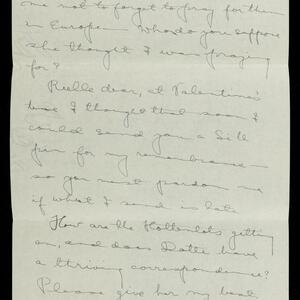 me not to forget to pray for them
in Europe. Who do you suppose
she thought I was praying
for?
Dear, at Valentine's
time I thought that soon I
could send you a
pin for my remembrance
so you must pardon me
if what I send is late.
How are the getting
on, and does have
a thriving correspondence?
Please give her my best